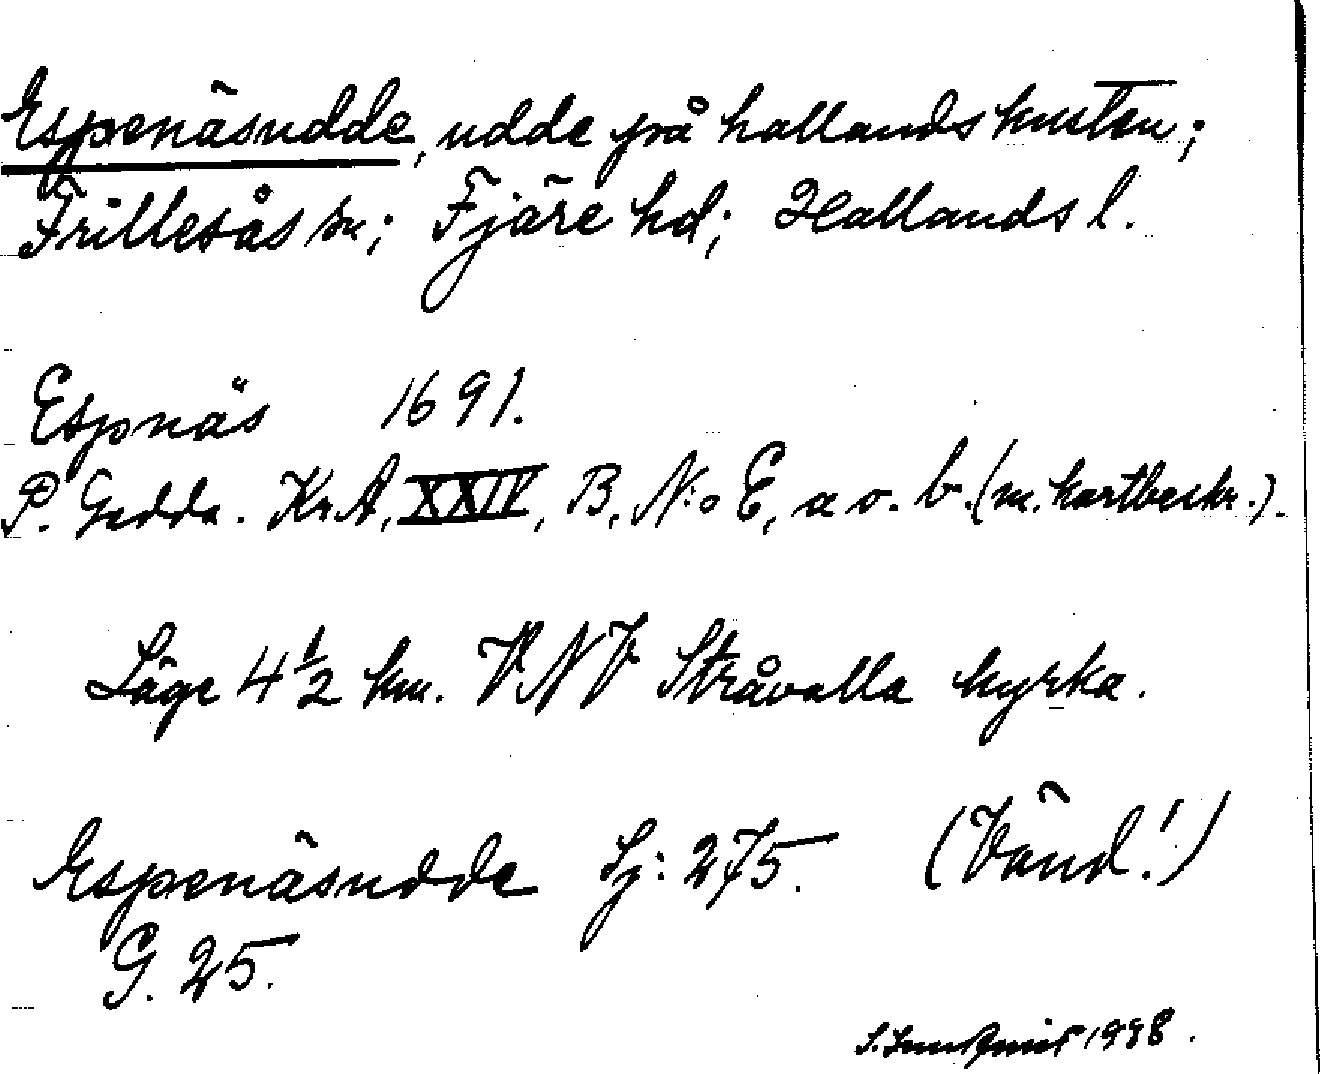 Espenäsudde, udde på hallandskusten;
Frillesås sn; Fjäre hd; Hallands l.
Espnäs 1691.
P. Gedda. Kr.A, XXIV, B, N:o E, a o. b. (m. kartbeskr.).
Läge 4 1/2 km. VNV Stråvalla kyrka.
Espenäsudde Sj: 275. (Vänd!)
G. 25.
S. 1998.